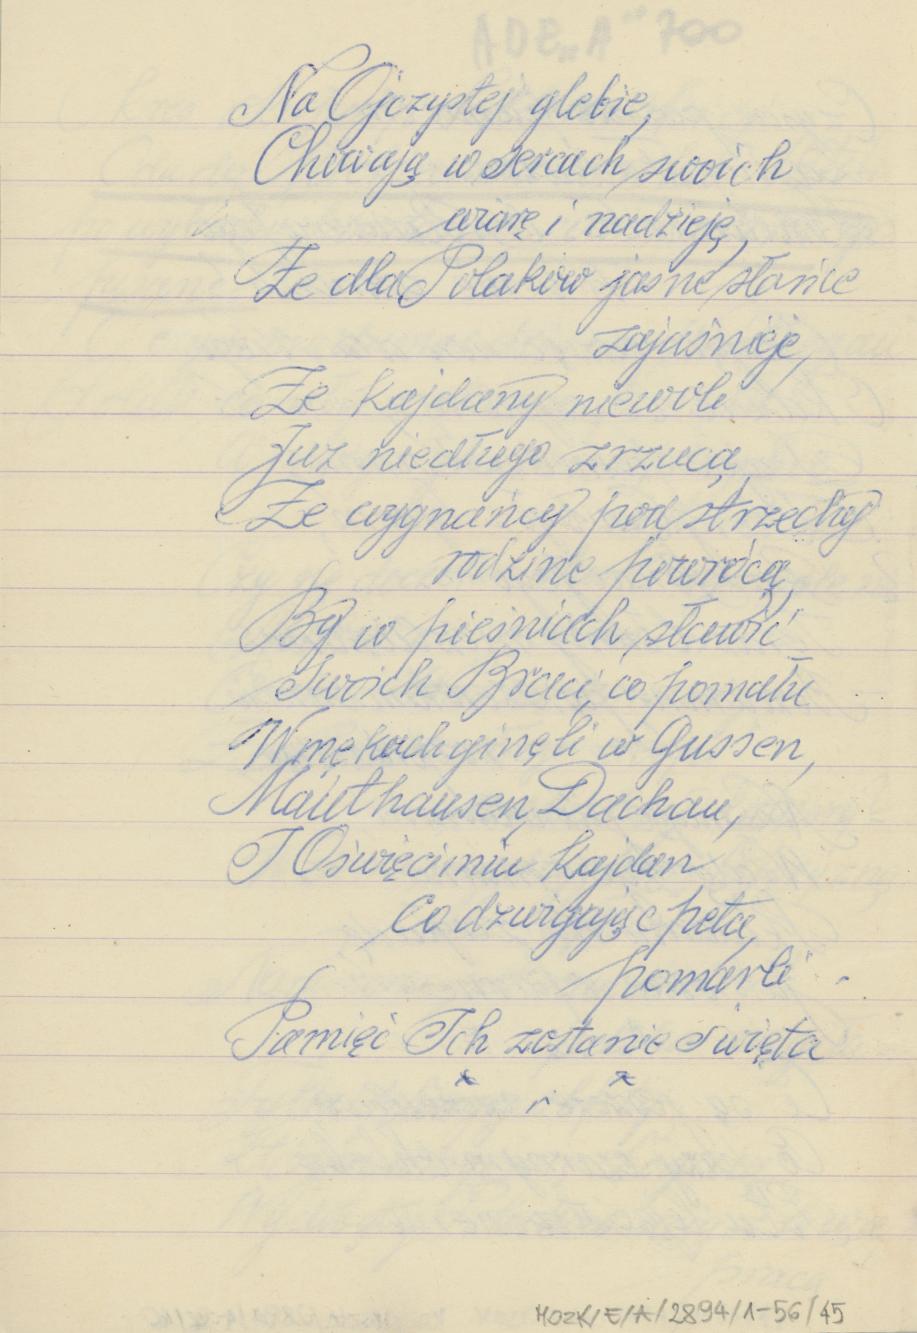 Na Ojczystej glebie,
Chowają w sercach swoich
wiarę i nadzieję,
Że dla Polaków jasne słońce
zajaśnieje,
Że kajdany niewoli
Już niedługo zrzucą,
Że wygnańcy pod strzechy
rodzine powrócą,
By w pieśniach sławić
Swoich Braci, co pomału
W mękach ginęli w Gussen,
Mauthausen, Dachau,
I Oświęcimiu kajdan
Co dzwigając pęta,
pomarli.
Pamięć Ich zostanie święta
MOZK/E/A/2894/1-56/45